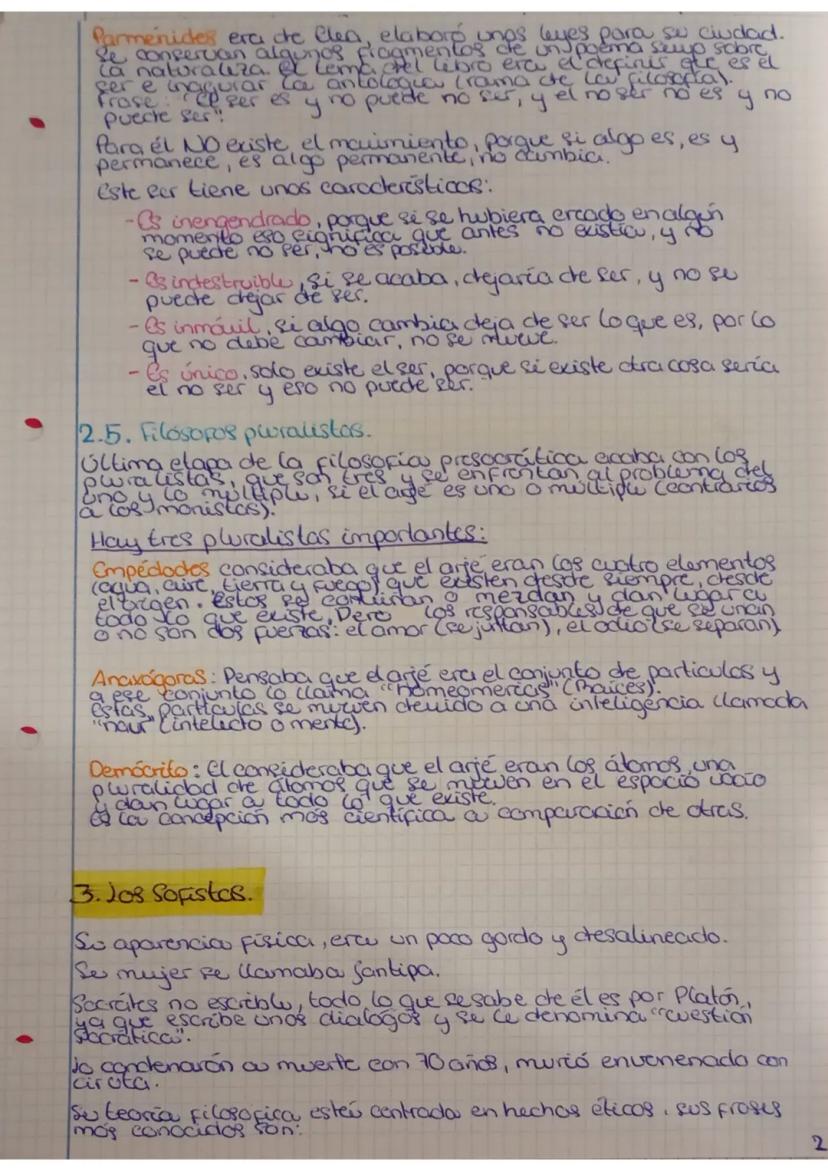 Parménides era de Elea, elaboró unas leyes para su ciudad.
Se conservan algunos fragmentos de un poema suyo sobre
la naturaleza. El tema del libro era el definir que es el
ser e inagurar la antología (rama de la filosofía).
Frase: "El ser es y no puede no ser, y el no ser no es y no
puede ser".
Para él NO existe el movimiento, porque si algo es, es y
permanece, es algo permanente, no cambia.
Este ser tiene unas características:
- Es inengendrado, porque si se hubiera creado en algún
momento eso significa que antes no existía, y no
se puede no ser, no es posible.
- Es indestruible, si se acaba, dejaría de ser, y no se
puede dejar de ser.
- Es inmóvil, si algo cambia deja de ser lo que es, por lo
que no debe cambiar, no se mueve.
- Es único, solo existe el ser, porque si existe otra cosa sería
el no ser y eso no puede ser.
2.5. Filósofos pluralistas.
Última etapa de la filosofía presocrática acaba con los
pluralistas, que son tres y se enfrentan al problema del
uno y lo múltiple, si el arjé es uno o múltiple (contrarios
a los monistas).
Hay tres pluralistas importantes:
Empédocles consideraba que el arjé eran los cuatro elementos
(agua, aire, tierra y fuego) que existen desde siempre, desde
el origen. Estos se combinan o mezclan y dan lugar a
todo lo que existe. Pero los responsables de que se unan
o no son dos fuerzas: el amor (se juntan), el odio (se separan)
Anaxágoras: Pensaba que el arjé era el conjunto de partículas y
a ese conjunto lo llama "homeomerías" (Raíces).
Estas partículas se mueven devido a una inteligencia llamada
"nour" (intelecto o mente).
Demócrito: El consideraba que el arjé eran los átomos, una
pluralidad de átomos que se mueven en el espacio vacío
y dan lugar a todo lo que existe.
Es la concepción más científica a comparación de otras.
3. Los Sofistas.
Su aparencia física, era un poco gordo y desalineado.
Se mujer se llamaba Jantipa.
Socrátes no escribló, todo lo que se sabe de él es por Platón,
ya que escribe unos dialogos y se le denomina "cuestión
socrática".
Lo condenarón a muerte con 70 años, murió envenenado con
cicuta.
Su teoría filosofica está centrada en hechos éticos. Sus frases
más conocidos son:
2